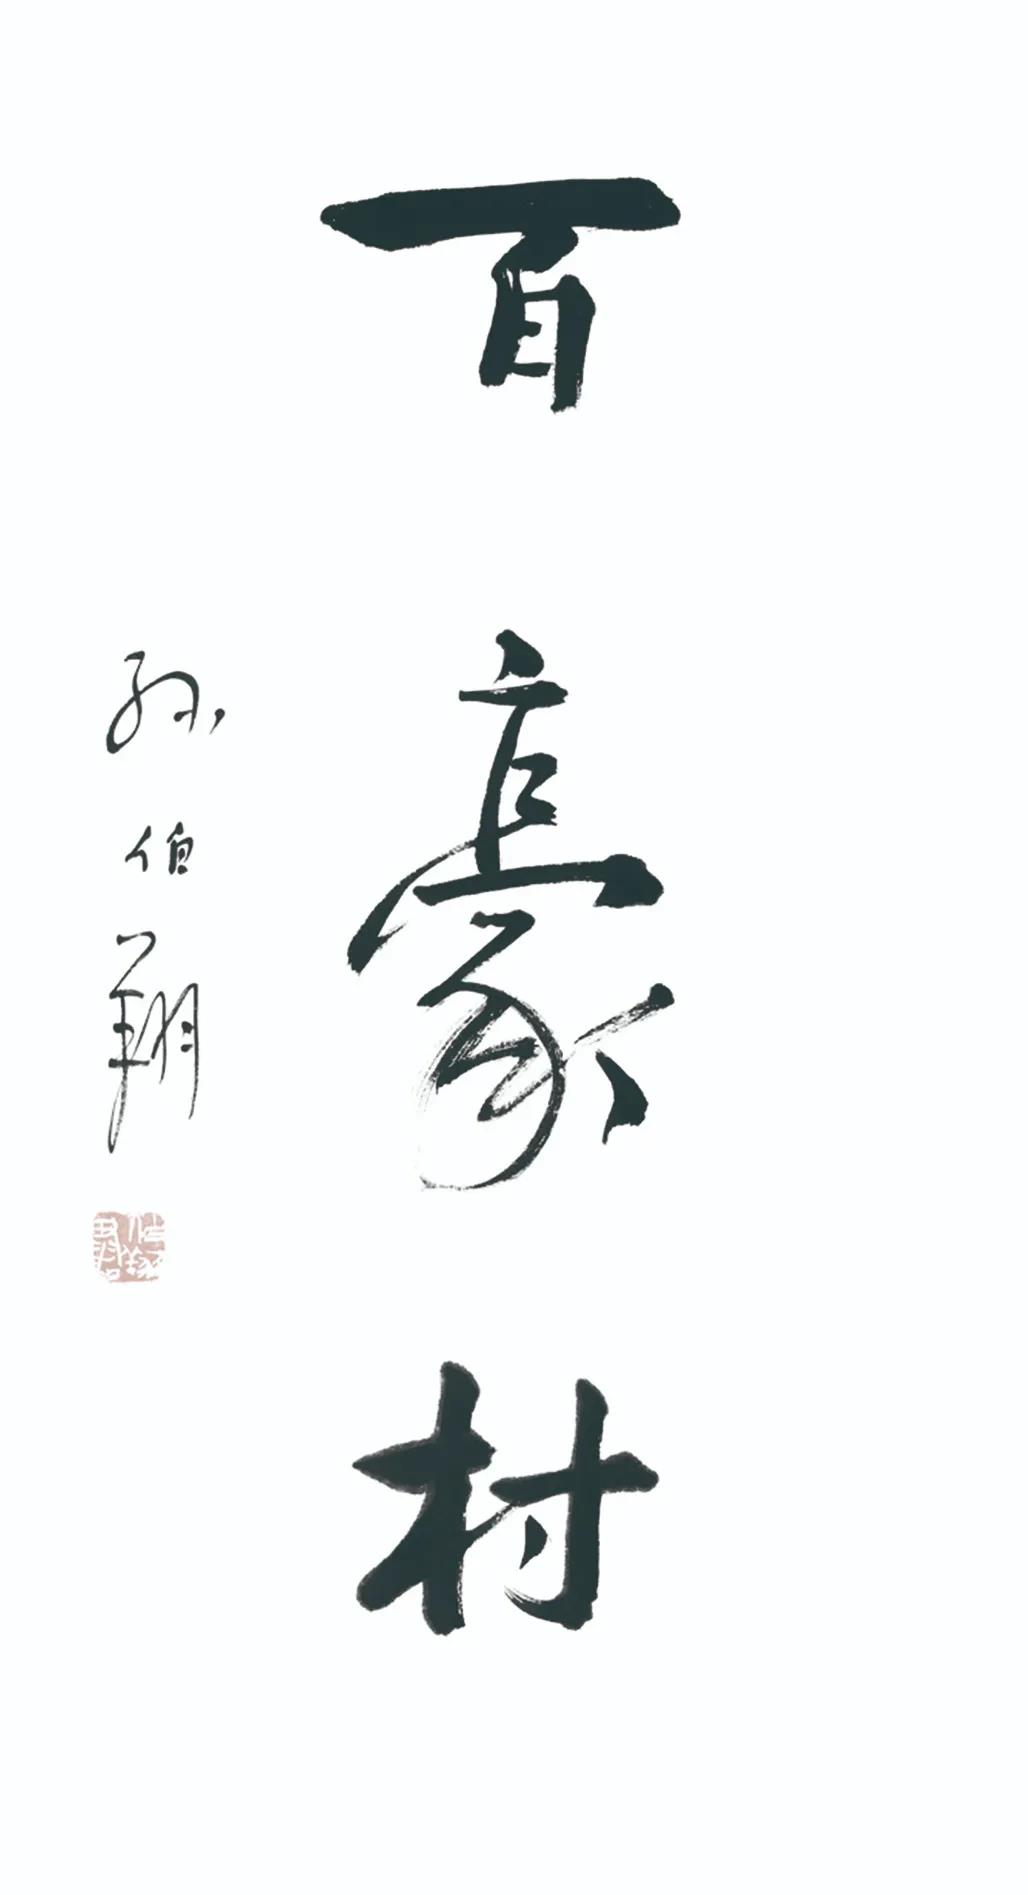 百豪村
孙伯翔